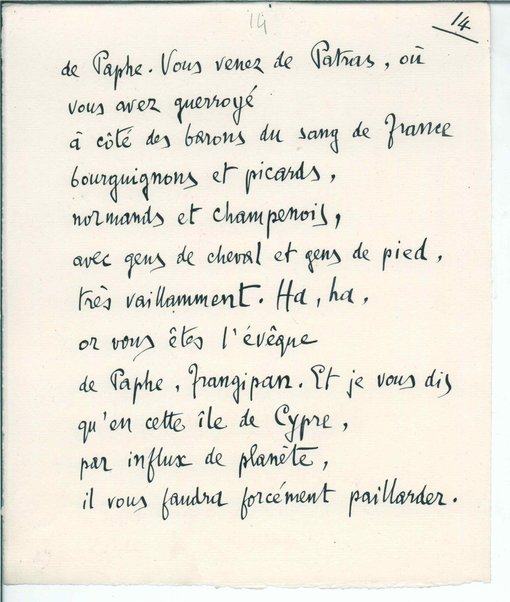 14
14
de Paphe. Vous venez de Patras, où
vous avez guerroyé
à côté des barons du sang de France
bourguignons et picards,
normands et champenois,
avec gens de cheval et gens de pied,
très vaillamment. Ha, ha,
or vous êtes l'évêque
de Paphe, Frangipan. Et je vous dis
qu'en cette île de Cypre,
par influx de planète,
il vous faudra forcément paillarder.